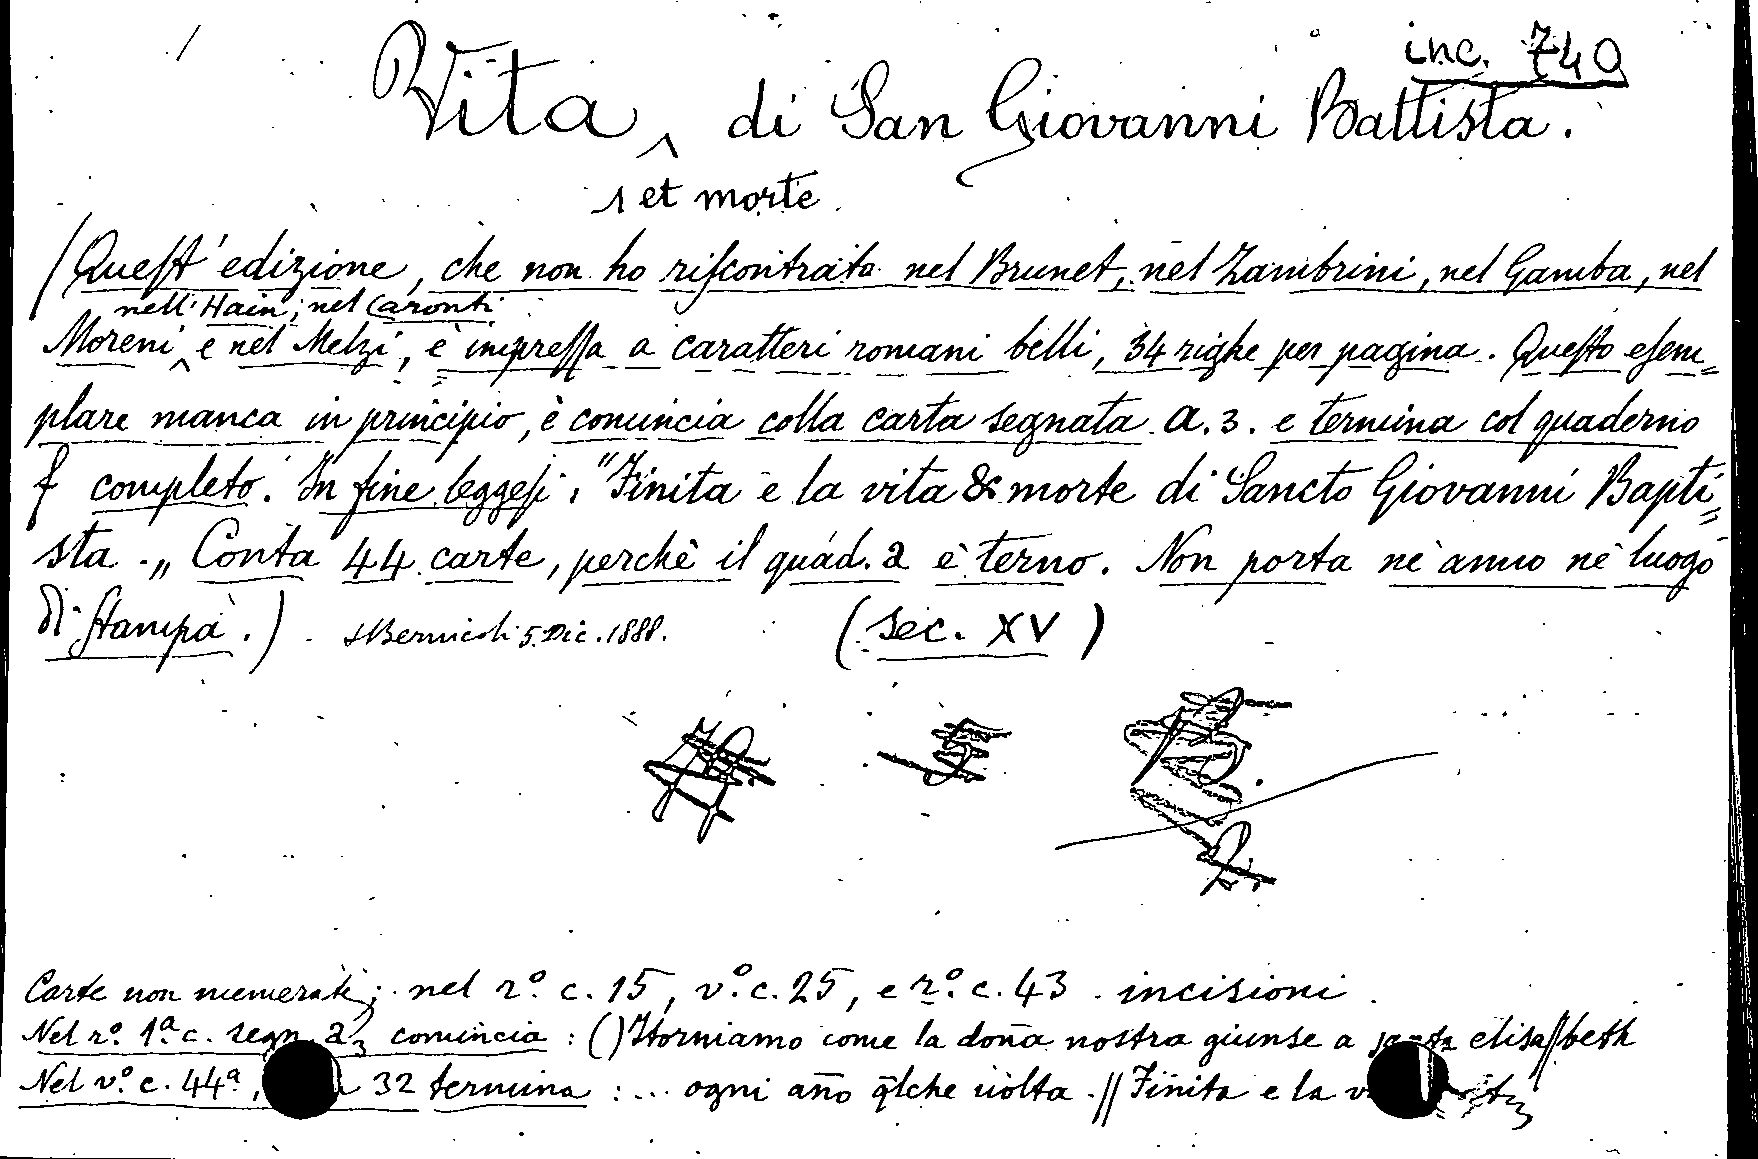 inc. 740
Vita ‸ di San Giovanni Battista.
et morte
(Quest' edizione, che non ho riscontrato nel Brunet, nel Zambrini, nel Gamba, nel
nell' Hain; nel Caronti
Moreni ‸ e nel Melzi, è impressa a caratteri romani belli, 34 righe per pagina. Questo esem=
plare manca in principio, è comincia colla carta segnata a.3. e termina col quaderno
f completo. In fine leggesi: "Finita e la vita & morte di Sancto Giovanni Bapti=
sta.„ Conta 44 carte, perchè il quad. a è terno. Non porta nè anno nè luogo
di stampa.) Bernicoli 5. Dic. 1888. (sec. XV)
Carte non numerate; nel rº. c. 15, vº. c. 25, e rº. c. 43. incisioni.
Nel rº. 1ª c. segn. a3 comincia: ( )Itorniamo come la doña nostra giunse a elisa//beth
Nel vº. c. 44ª, 32 termina: ... ogni año q̃lche uolta. // Finita e la